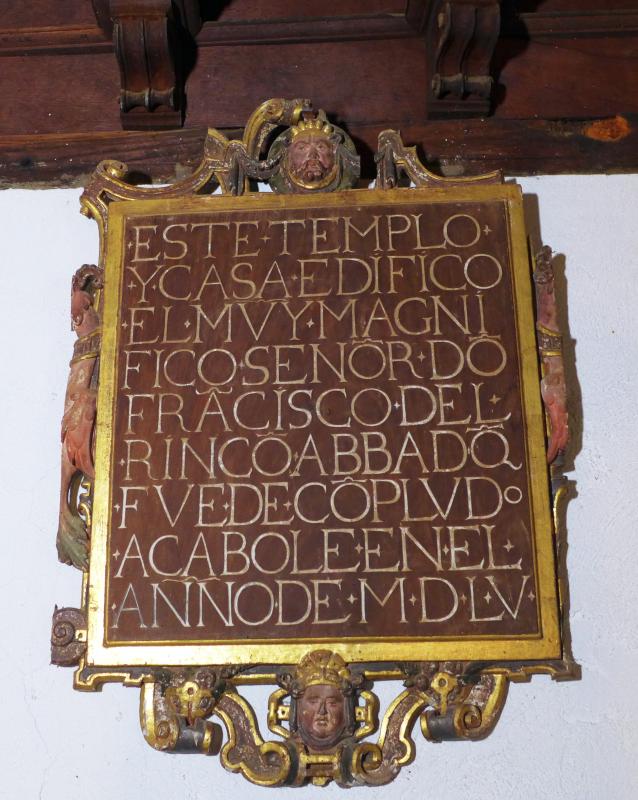 ESTE·TEMPLO·
·Y·CASA·EDÍFÍCO
·EL·MVŸ·MAGNI
FICO·SEÑOR·DÕ
FRÃCÍSCO·DEL·
·RINCÕ·ABBAD·Q̃
·FVE·DE·CÕPLVDº
·ACABOLE·EN·EL·
·AÑNO·DE·M·D·LV·